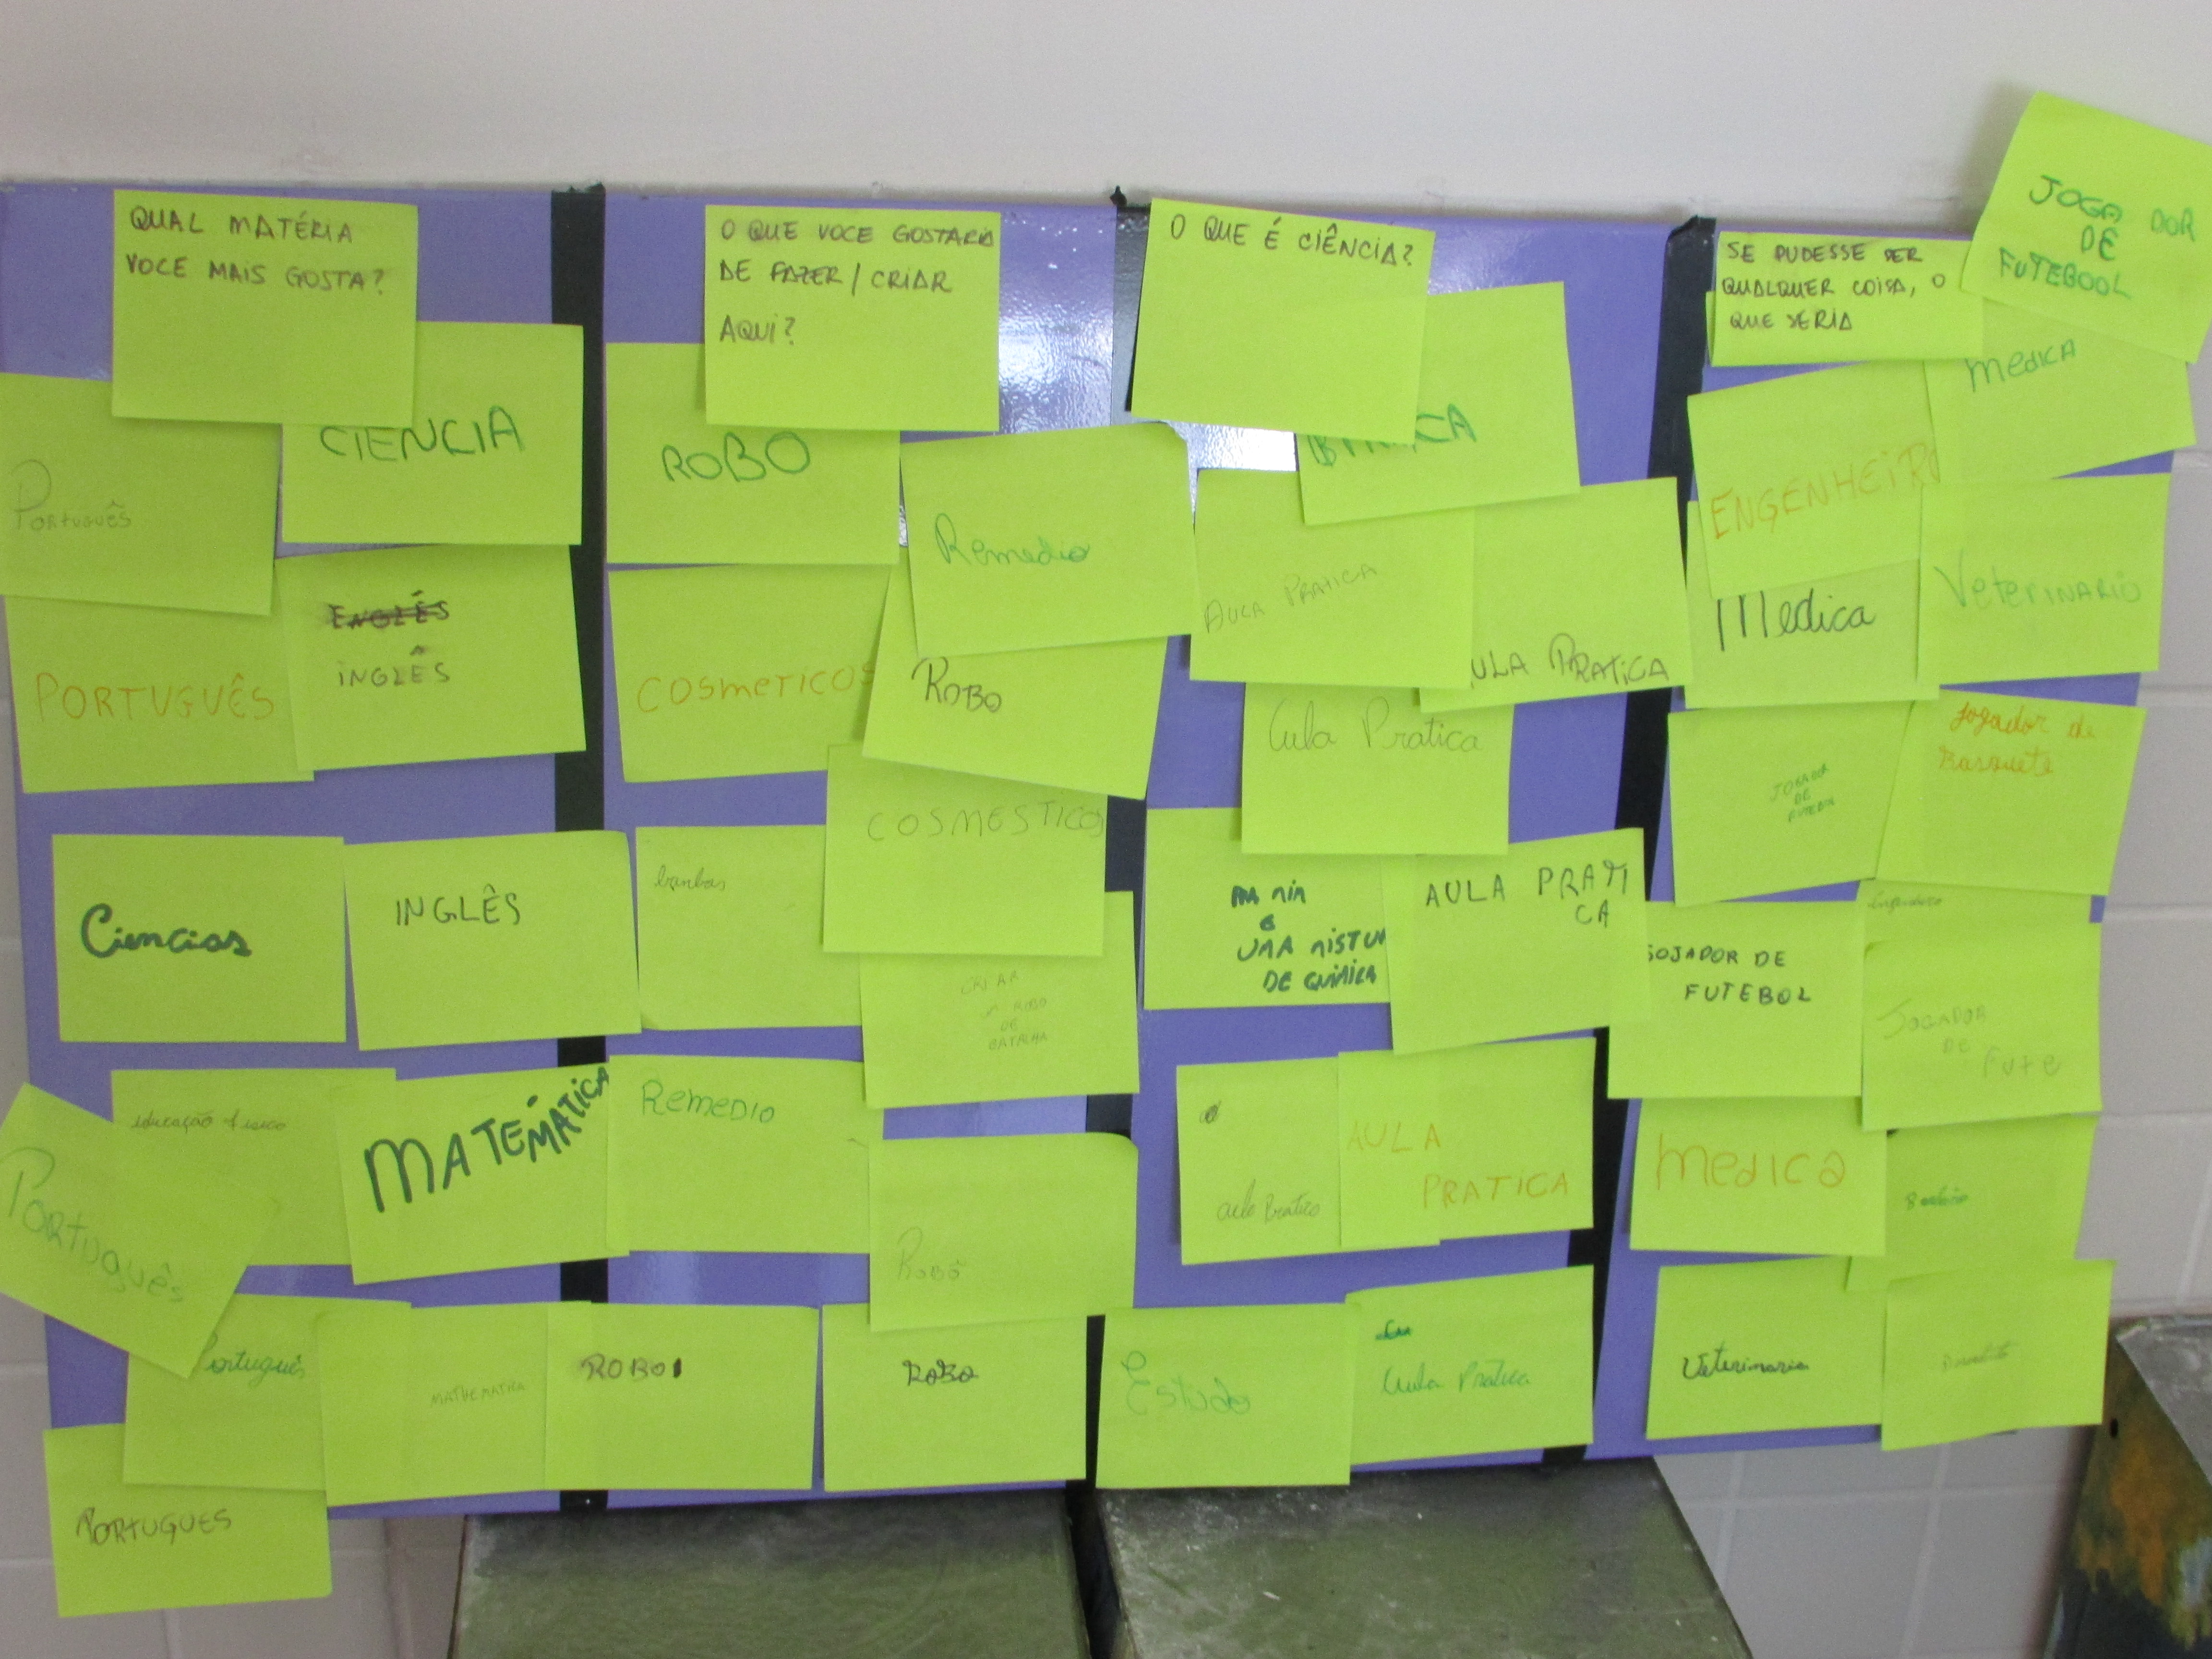 QUAL MATÉRIA
VOCE MAIS GOSTA?
CIENCIA
PORTUGUÊS
ENGLÊS
INGLÊS
PORTUGUÊS
Ciencias
INGLÊS
educação fisico
MATEMÁTICA
PORTUGUÊS
Português
MATHEMATICA
PORTUGUES
O QUE VOCE GOSTARIA
DE FAZER / CRIAR
AQUI?
ROBO
Remedio
COSMETICOS
ROBO
COSMESTICOS
bombas
CRIAR
ROBO
DE
BATALHA
REMEDIO
ROBÔ
ROBO
ROBO
O QUE É CIÊNCIA?
AULA PRATICA
ULA PRATICA
Aula Pratica
UMA MISTU
DE QUIMICA
AULA PRATI
CA
AULA
PRATICA
Estudo
Aula Pratica
SE PUDESSE SER
QUALQUER COISA, O
QUE SERIA
JOGA DOR
DE
FUTEBOOL
MEDICA
ENGENHEIRO
Medica
VETERINARIO
JOGADOR
DE
Jogador de
Basquete
GOJADOR DE
FUTEBOL
JOGADOR
DE
FUTE
MEDICA
Veterinaria